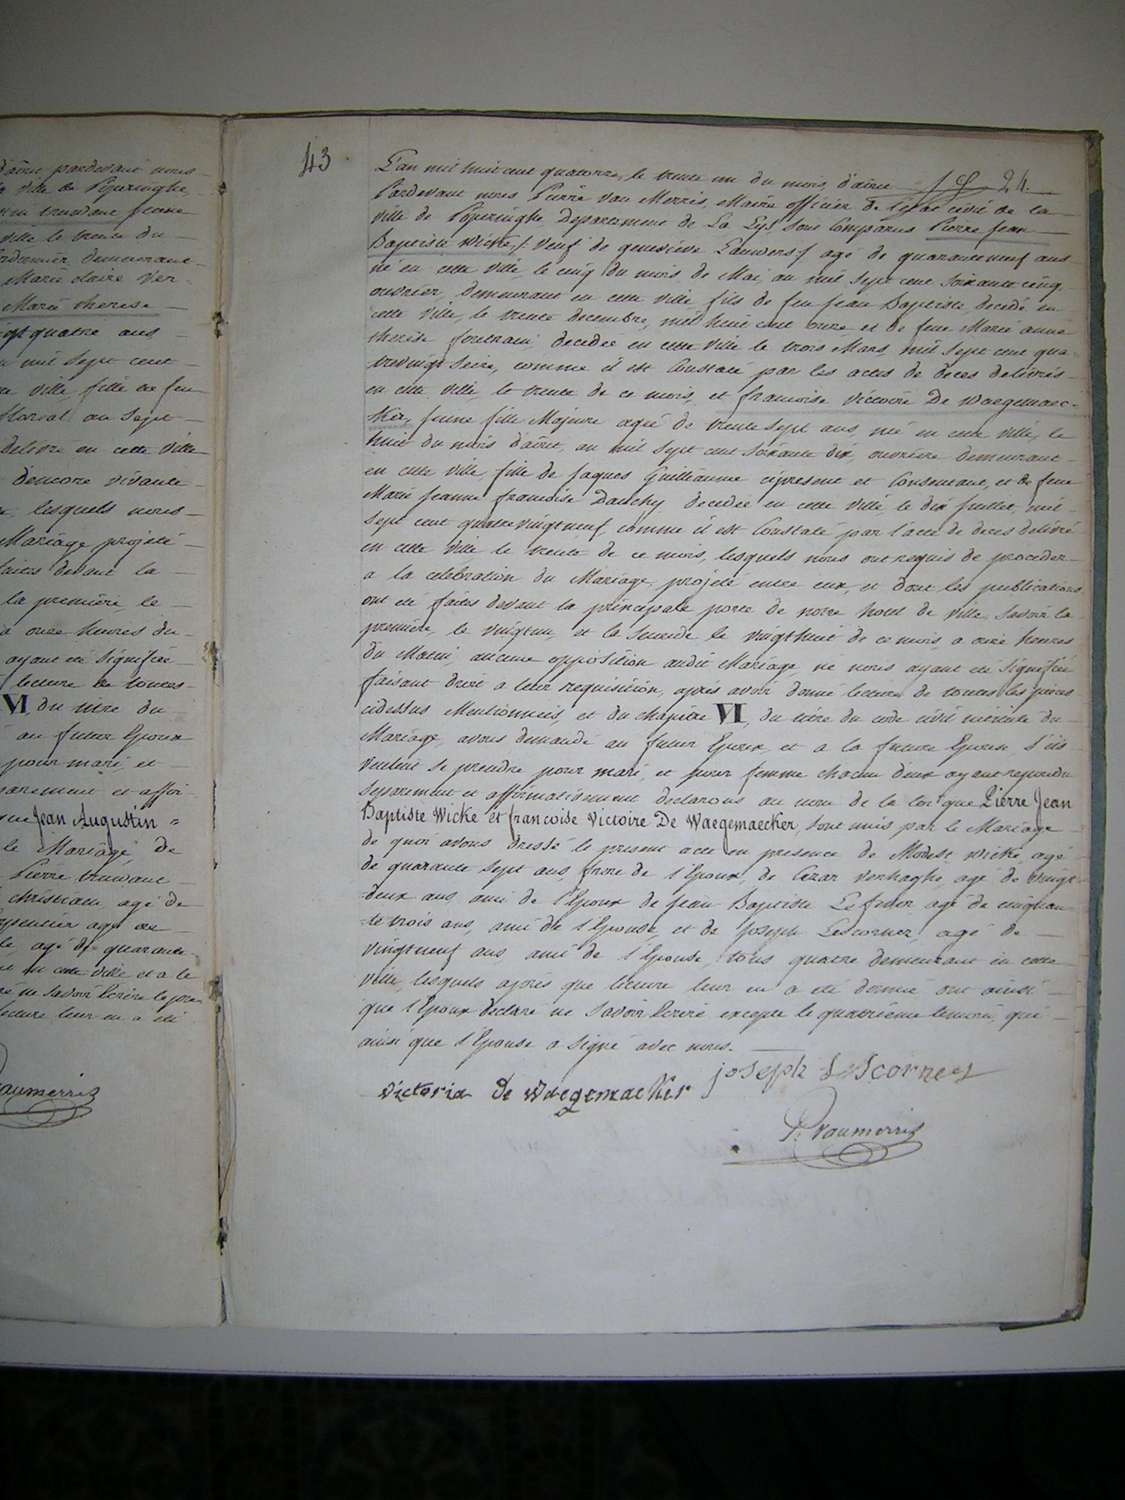 d'aôut pardevant nous
la ville de Poperinghe
truwant jeune
ville le trente du
cordonnier demeurant
Marie Claire Ver-
Marie therese
vingt quatre ans
mil sept cent
ville, fille de feu
floreal an Sept
delivré en cette ville
dencore vivante
lesquels nous
Mariage projeté
faites devant la
la première le
à onze heures du
ayant été signifiée
lecture de toutes
VI, du titre du
au futur Epoux
pour mari, et
parement et affir-
que Jean Augustin
le Mariage, de
Pierre truwant
christiaen, agé de
agé de
agé de quarante
en cette ville et a le
ne savoir Ecrire le pre-
lecture leur en a été
Vanmerris
43
L'an mil huit cent quatorze, le trente un du mois, d'aôut 24.
Pardevant nous Pierre Van Merris, Maire officier de l'etat civil de la
ville de Poperinghe Departement de La Lys sont Comparus Pierre Jean
Baptiste Wicke, veuf de genevieve Lauwers agé de quarante neuf ans
né en cette ville le cinq du mois de Mai, an mil sept cent soixante cinq,
ouvrier, demeurant en cette ville, fils de feu Jean Baptiste, decedé en
cette ville, le trente decembre, mil huit cent onze et de feue Marie anne
therese fontrain, decedée en cette ville le trois Mars mil sept cent qua-
trevingt seize, comme il est Constaté par les actes de deces delivrés
en cette ville, le trente de ce mois, et francoise victoire De Waegemaec-
ker, jeune fille Majeure agée de trente sept ans, né en cette ville, le
huit du mois d'aôut, an mil sept cent soixante dix, ouvriere demeurant
en cette ville, fille de Jaques Guilliaume ci present et Consentant, et de feue
Marie Jeanne francoise Dauchy decedée en cette ville le dix Juillet, mil
sept cent quatrevingt neuf comme il est Constaté par l'acte de deces delivré
en cette ville le trente de ce mois, lesquels nous ont requis de proceder
a la celebration du Mariage, projeté entre eux, et dont les publications
ont été faites devant la principale porte de notre hotel de ville, Savoir la
première, le vingt un, et la seconde le vingt huit de ce mois, a onze heures
du Matin, aucune opposition audit Mariage, ne nous ayant été signifiée
faisant droit a leur requisition, après avoir donné lecture de toutes les pièces
cidessus Mentionnées, et du chapitre VI, du titre du code civil intitulé du
Mariage, avons demandé au futur Epoux et a la future Epouse, s'ils
veulent se prendre pour mari, et pour femme chacun d'eux ayant repondu
separement et affirmativement declarons au nom de la loi que Pierre Jean
Baptiste Wicke et francoise Victoire De Waegemaecker, sont unis par le Mariage
de quoi avons dressé le present acte en presence de Modest Wicke, agé
de quarante sept ans, frere de l'Epoux, de Cezar verhaghe, agé de vingt
deux ans, ami de l'Epoux de Jean Baptiste agé de cinquan-
te trois ans, ami de l'Epouse, et de Joseph Lescornez, agé de
vingt neuf ans, ami de l'Epouse, tous quatre demeurant en cette
ville, lesquels après que lecture leur en a été donnée ont ainsi
que l'Epoux declaré ne Savoir Ecrire excepté le quatrième temoin, qui
ainsi que l'Epouse a signé avec nous.
Joseph Lescornez
victoria De Waegemaeker
P. Vanmerris